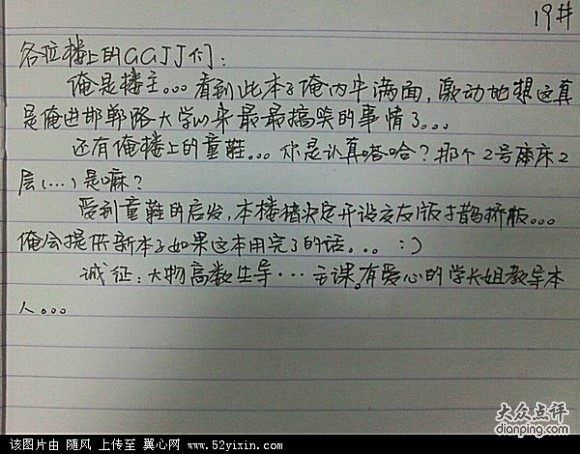 19#
各位楼上的GGJJ们：
俺是楼主。。。看到此本子俺内牛满面，激动地想这真
是俺进邯郸路大学以来最最搞笑的事情了。。。
还有俺楼上的童鞋。。。你是认真嗒哈？那个2号 床2
层(...)是嘛？
受到童鞋的启发，本楼猪决定开设交友版才鹊桥板。。。
俺会提供新本子如果这本用完了的话。。。:)
诚征：大物高数 导... 课。有爱心的学长姐教导本
人。。。
大众点评
dianping.com
该图片由 随风 上传至 翼心网 www.52yixin.com